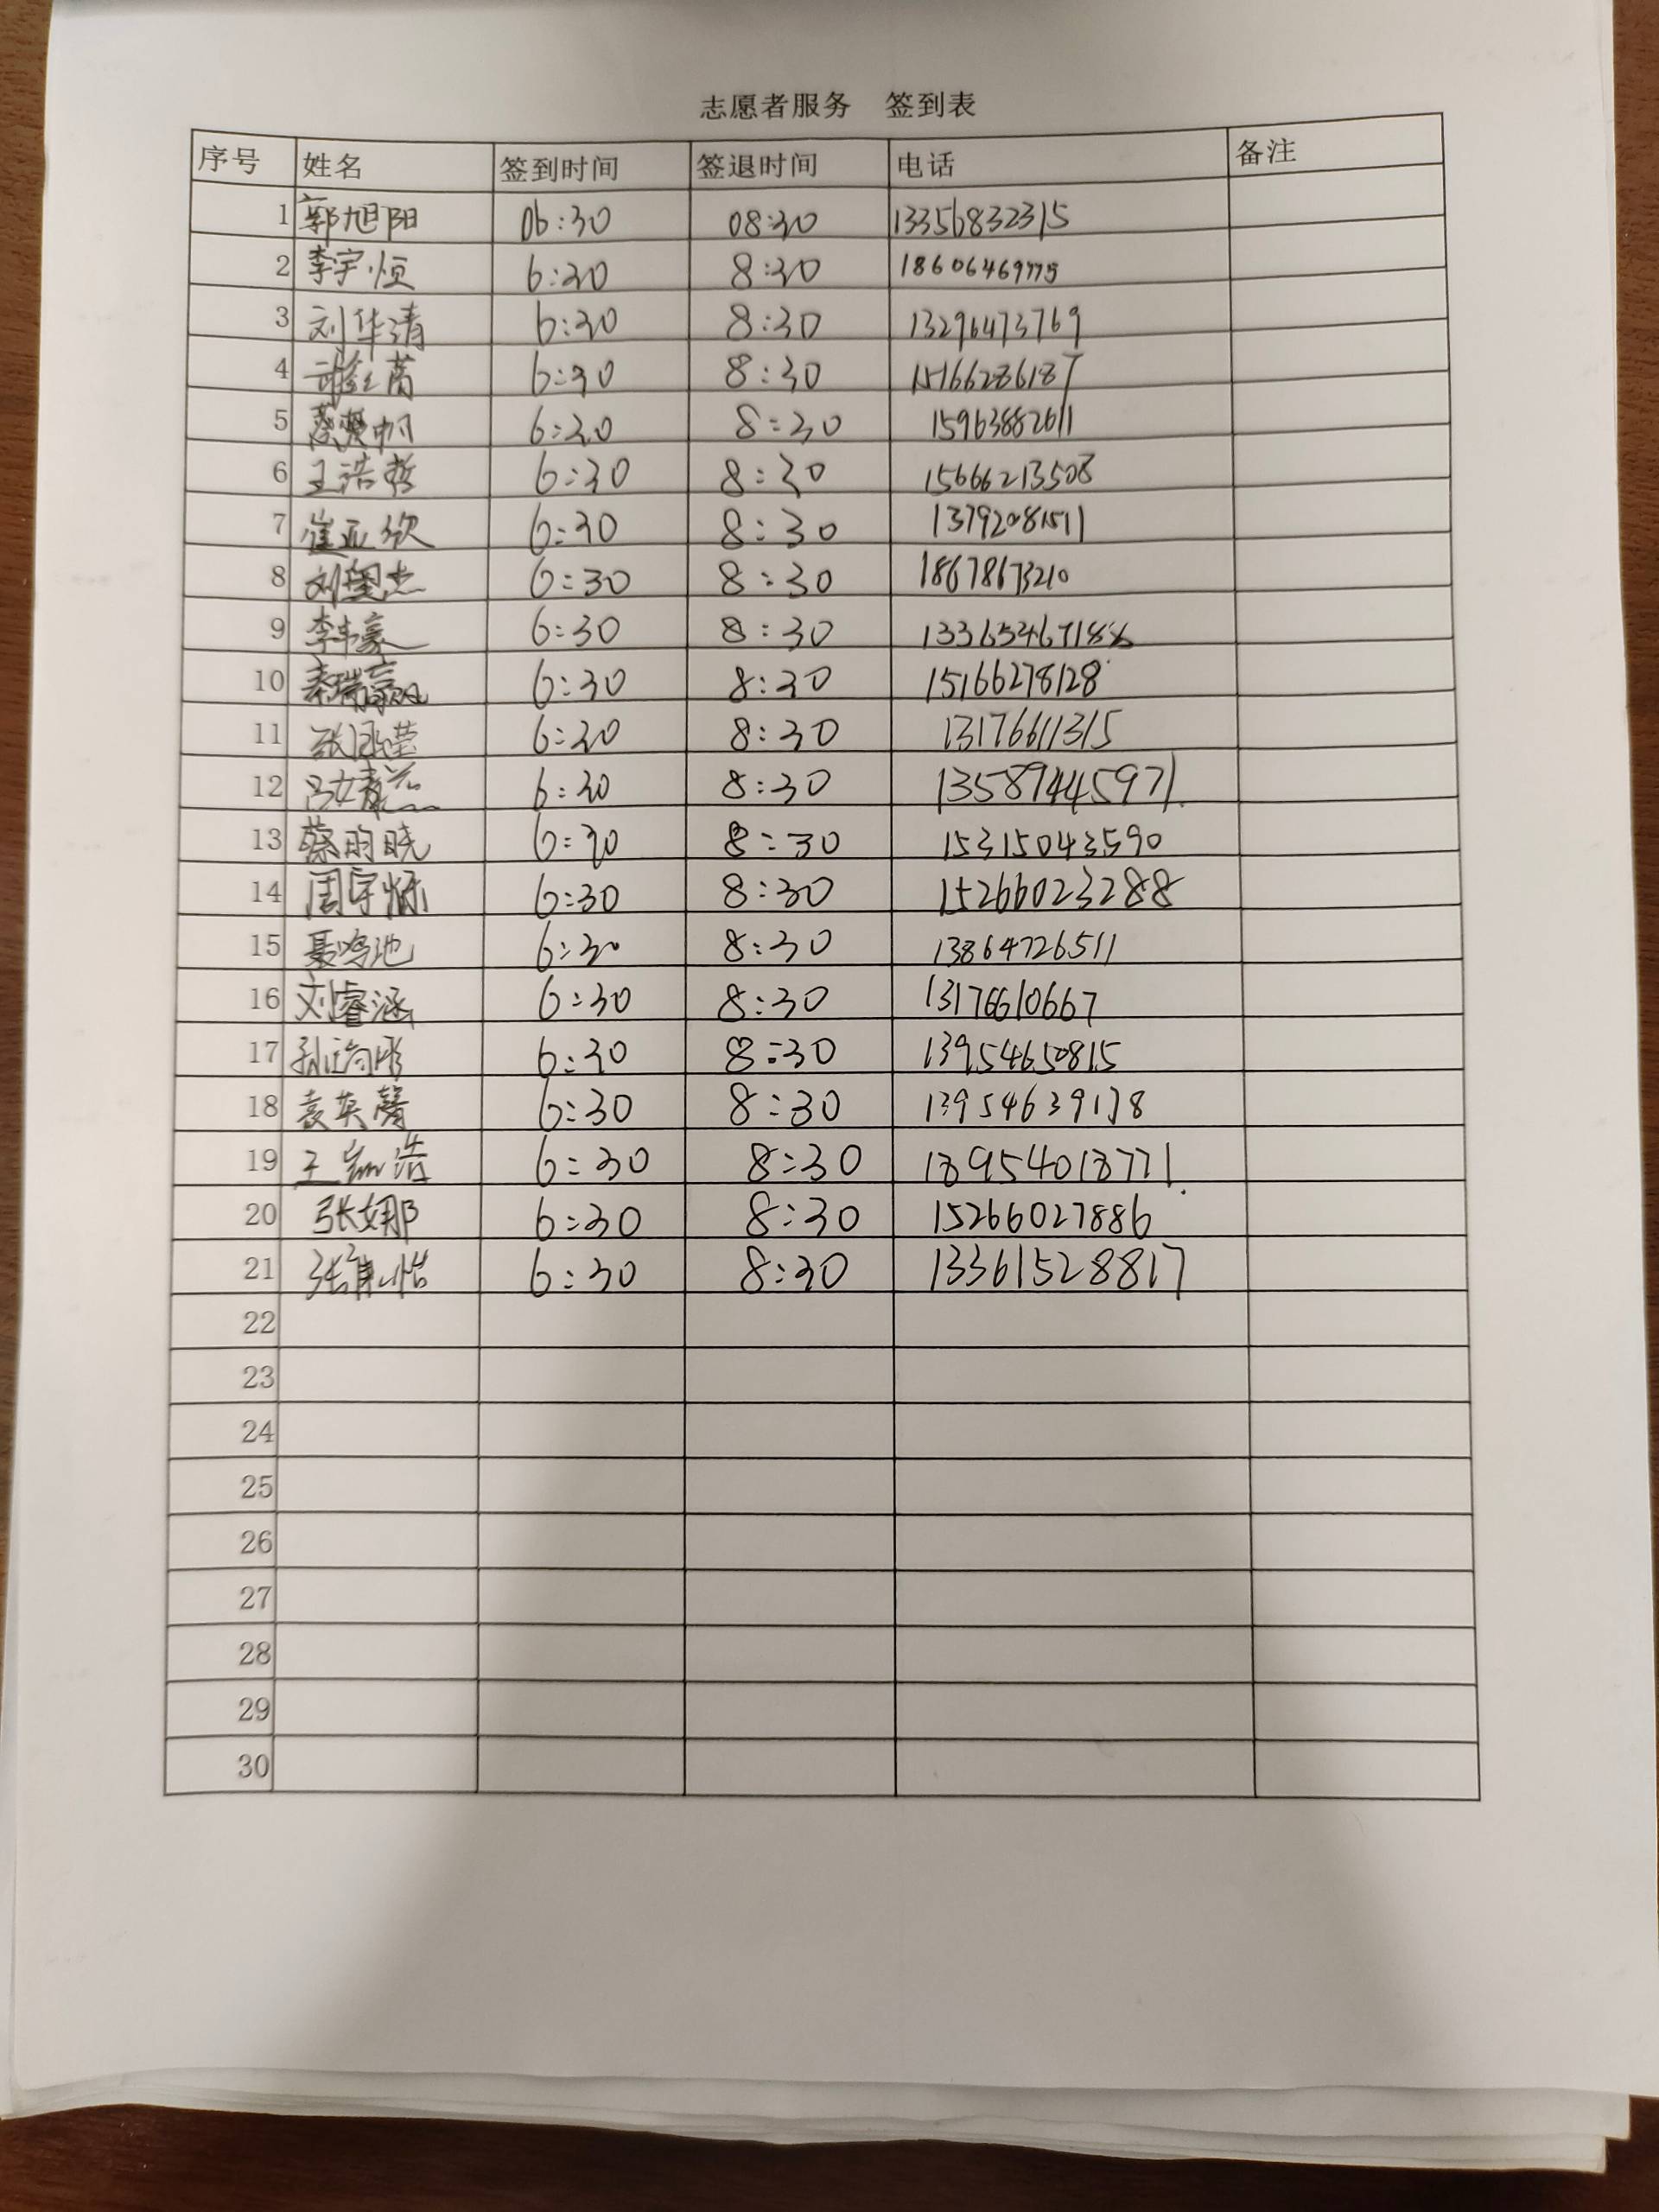 志愿者服务 签到表
序号 姓名 签到时间 签退时间 电话 备注
1 郭旭阳 06:30 08:30 13356832315
2 李宇恒 6:30 8:30 18606469775
3 刘华清 6:30 8:30 13296473769
4 6:30 8:30 15166286187
5 6:30 8:30 15963882611
6 王浩哲 6:30 8:30 15666213508
7 崔亚欣 6:30 8:30 13792081511
8 刘望杰 6:30 8:30 18678673210
9 李韦豪 6:30 8:30
10 6:30 8:30 15166278128
11 6:30 8:30 13176611315
12 6:30 8:30 13589445971
13 蔡昀晓 6:30 8:30 15315043590
14 6:30 8:30 15266023288
15 聂鸣池 6:30 8:30 13864726511
16 刘睿涵 6:30 8:30 13176610667
17 6:30 8:30 13954650815
18 袁英馨 6:30 8:30 13954639178
19 6:30 8:30 18954018771
20 张娜 6:30 8:30 15266027886
21 6:30 8:30 13361528817
22
23
24
25
26
27
28
29
30